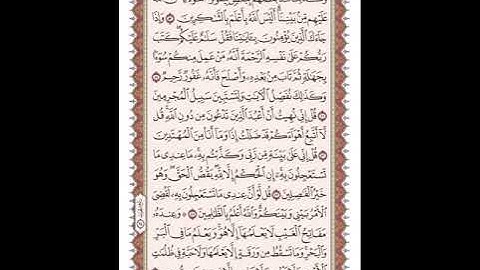 عَلَيْهِم مِّنۢ بَيْنِنَآ أَلَيْسَ ٱللَّهُ بِأَعْلَمَ بِٱلشَّٰكِرِينَ ۝ وَإِذَا
جَآءَكَ ٱلَّذِينَ يُؤْمِنُونَ بِـَٔايَٰتِنَا فَقُلْ سَلَٰمٌ عَلَيْكُمْ كَتَبَ
رَبُّكُمْ عَلَىٰ نَفْسِهِ ٱلرَّحْمَةَ أَنَّهُۥ مَنْ عَمِلَ مِنكُمْ سُوٓءًۢا
بِجَهَٰلَةٍ ثُمَّ تَابَ مِنۢ بَعْدِهِۦ وَأَصْلَحَ فَأَنَّهُۥ غَفُورٌ رَّحِيمٌ ۝
وَكَذَٰلِكَ نُفَصِّلُ ٱلْـَٔايَٰتِ وَلِتَسْتَبِينَ سَبِيلُ ٱلْمُجْرِمِينَ
۝ قُلْ إِنِّى نُهِيتُ أَنْ أَعْبُدَ ٱلَّذِينَ تَدْعُونَ مِن دُونِ ٱللَّهِ قُل
لَّآ أَتَّبِعُ أَهْوَآءَكُمْ قَدْ ضَلَلْتُ إِذًا وَمَآ أَنَا۠ مِنَ ٱلْمُهْتَدِينَ
۝ قُلْ إِنِّى عَلَىٰ بَيِّنَةٍ مِّن رَّبِّى وَكَذَّبْتُم بِهِۦ مَا عِندِى مَا
تَسْتَعْجِلُونَ بِهِۦٓ إِنِ ٱلْحُكْمُ إِلَّا لِلَّهِ يَقُصُّ ٱلْحَقَّ وَهُوَ
خَيْرُ ٱلْفَٰصِلِينَ ۝ قُل لَّوْ أَنَّ عِندِى مَا تَسْتَعْجِلُونَ بِهِۦ لَقُضِىَ
ٱلْأَمْرُ بَيْنِى وَبَيْنَكُمْ وَٱللَّهُ أَعْلَمُ بِٱلظَّٰلِمِينَ ۝ وَعِندَهُۥ
مَفَاتِحُ ٱلْغَيْبِ لَا يَعْلَمُهَآ إِلَّا هُوَ وَيَعْلَمُ مَا فِى ٱلْبَرِّ
وَٱلْبَحْرِ وَمَا تَسْقُطُ مِن وَرَقَةٍ إِلَّا يَعْلَمُهَا وَلَا حَبَّةٍ فِى ظُلُمَٰتِ